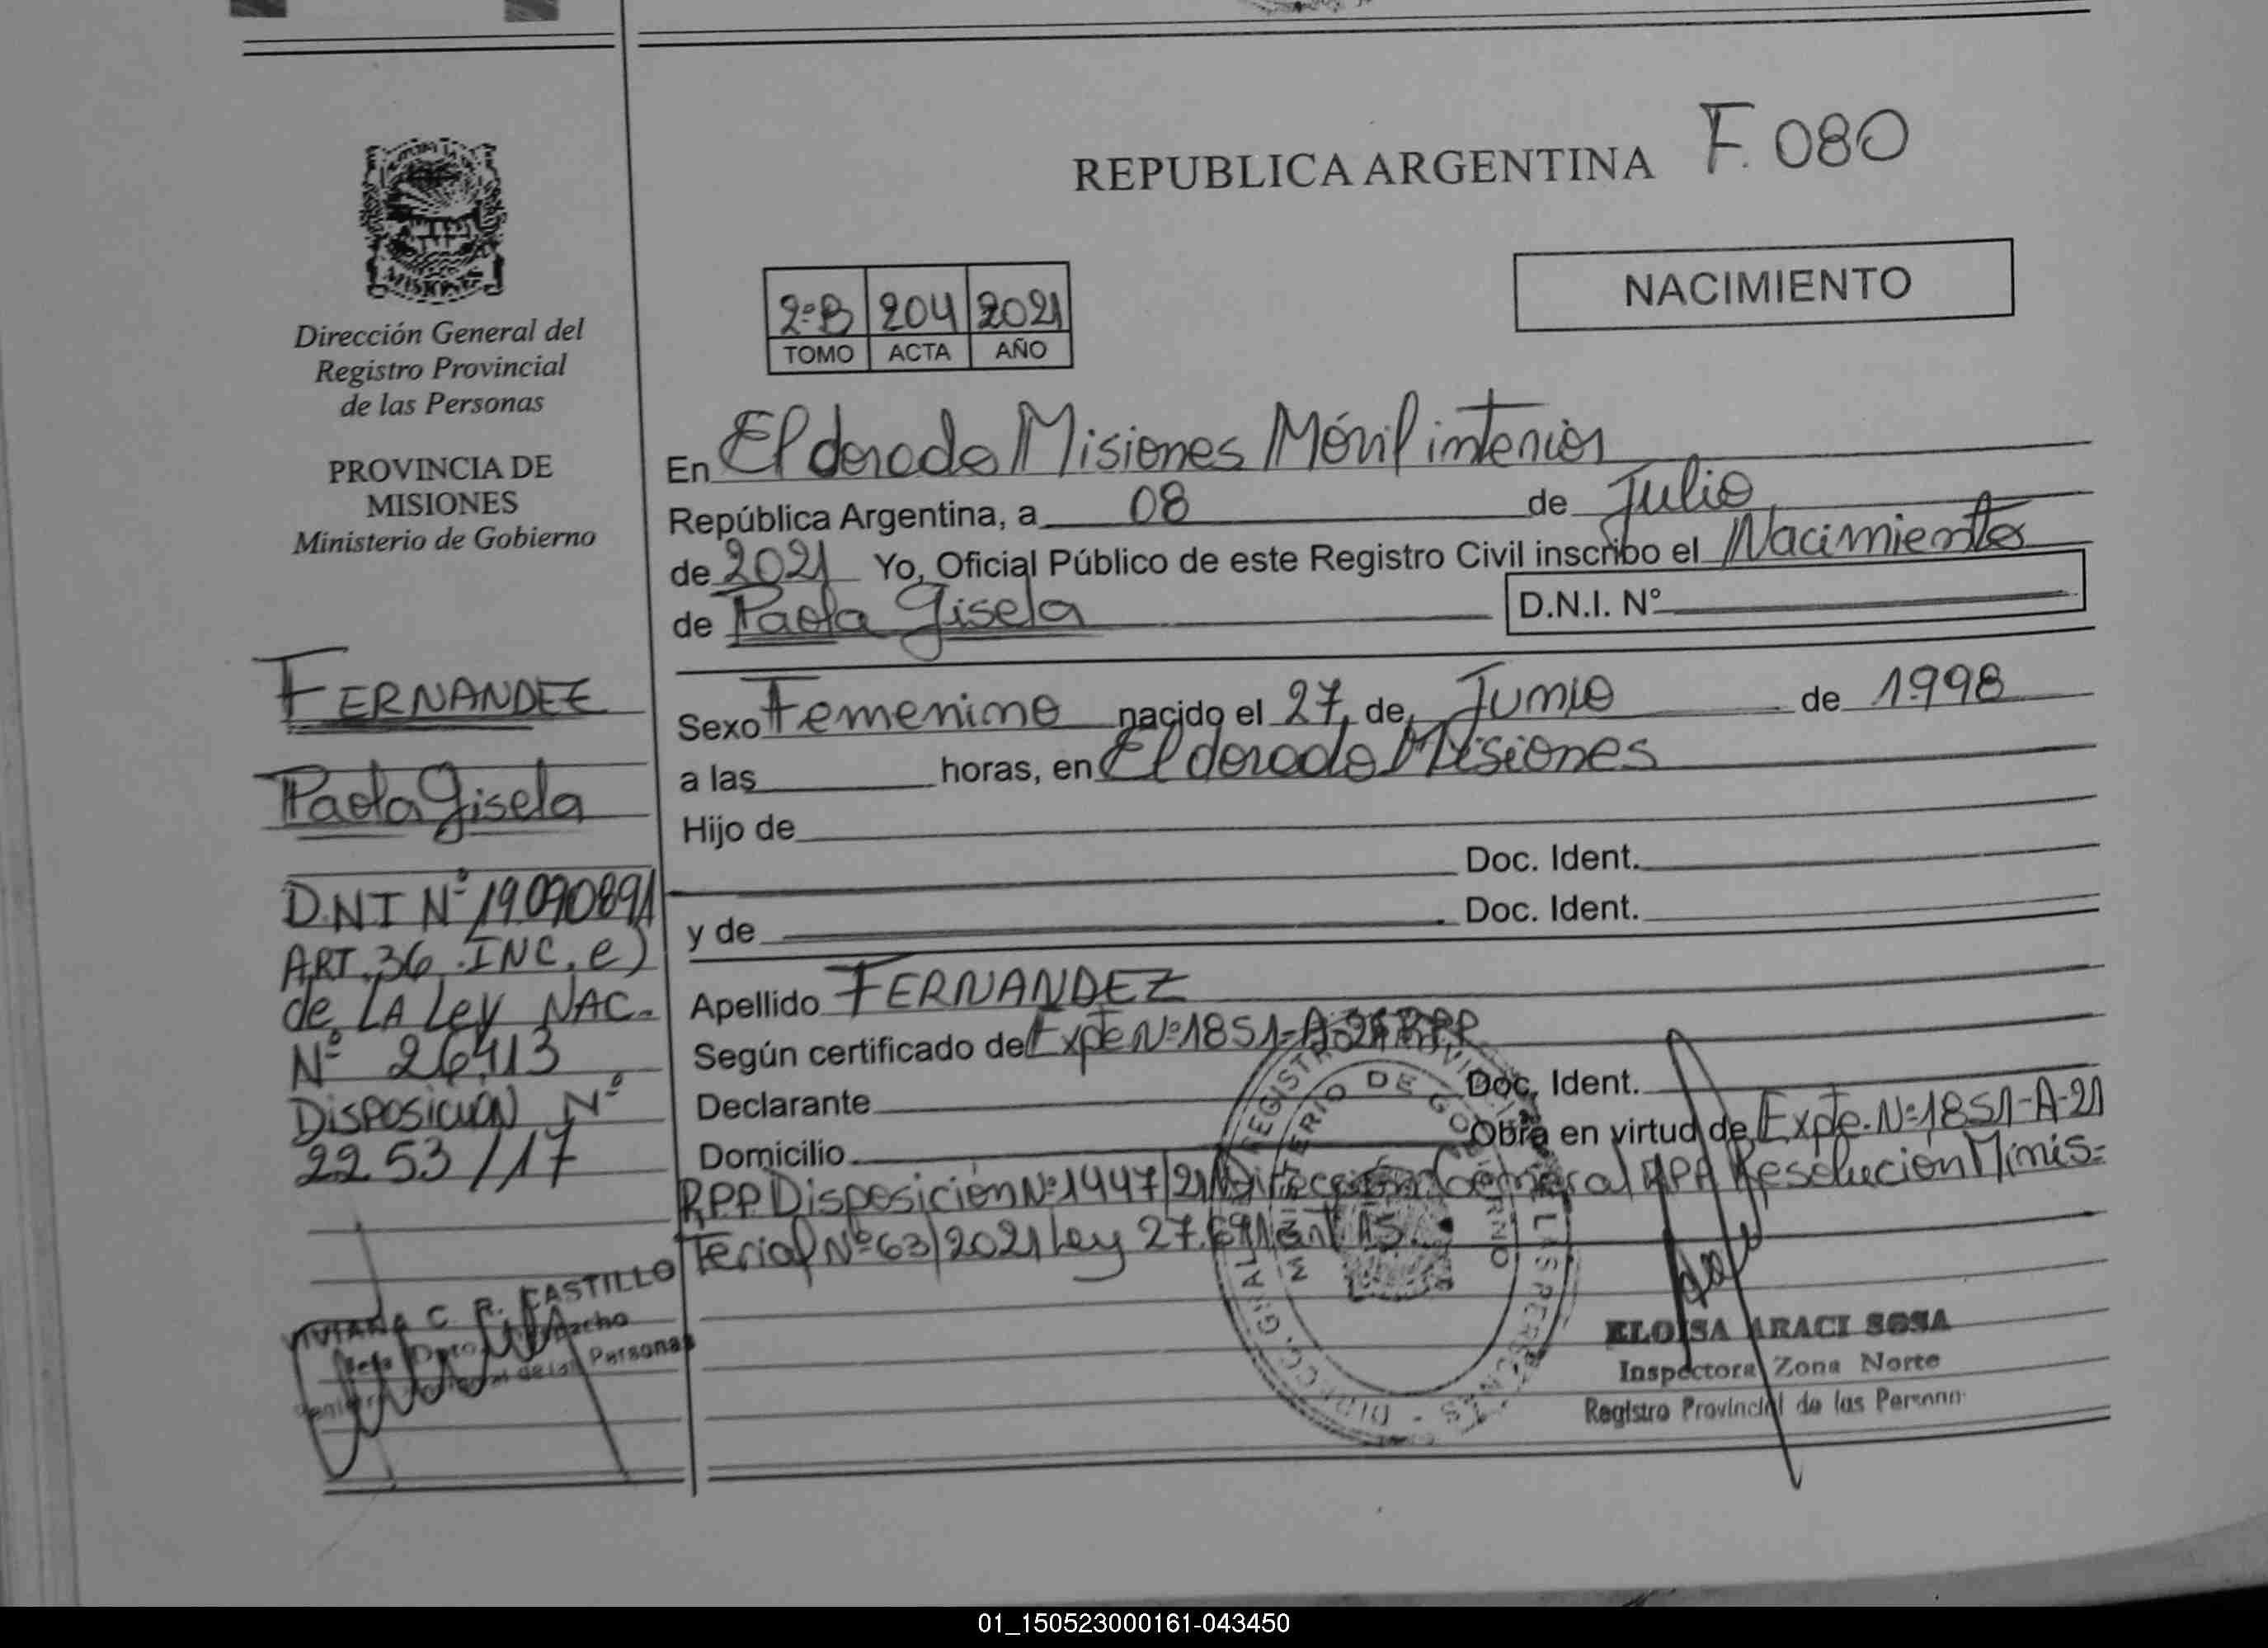 REPUBLICA ARGENTINA F. 080
NACIMIENTO
2ºB 204 2021
TOMO ACTA AÑO
MISIONES
Dirección General del
Registro Provincial
de las Personas
PROVINCIA DE
MISIONES
Ministerio de Gobierno
FERNANDEZ
Paola Gisela
D.N.I Nº 19.090.891
ART. 36 .INC. e)
de LA Ley NAC.
Nº 26.413
DISPOSICION Nº
2253/17
VIVIANA C. R. CASTILLO
Jefa Dpto. Despacho
de las Personas
En Eldorado Misiones Móvil interior
República Argentina, a 08 de Julio
de 2021 Yo, Oficial Público de este Registro Civil inscribo el Nacimiento
de Paola Gisela D.N.I. Nº
Sexo Femenino nacido el 27 de Junio de 1998
a las horas, en Eldorado Misiones
Hijo de
Doc. Ident.
y de Doc. Ident.
Apellido FERNANDEZ
Según certificado de Expte Nº 1851-A-21 RPP
Declarante Doc. Ident.
Domicilio Obra en virtud de Expte. Nº 1851-A-21
RPP Disposición Nº 1447/21 Dirección General RPP Resolución Minis=
terial Nº 63/2021 Ley 27.611 art 15.
ELOISA ARACI SOSA
Inspectora Zona Norte
Registro Provincial de las Person
01_150523000161-043450